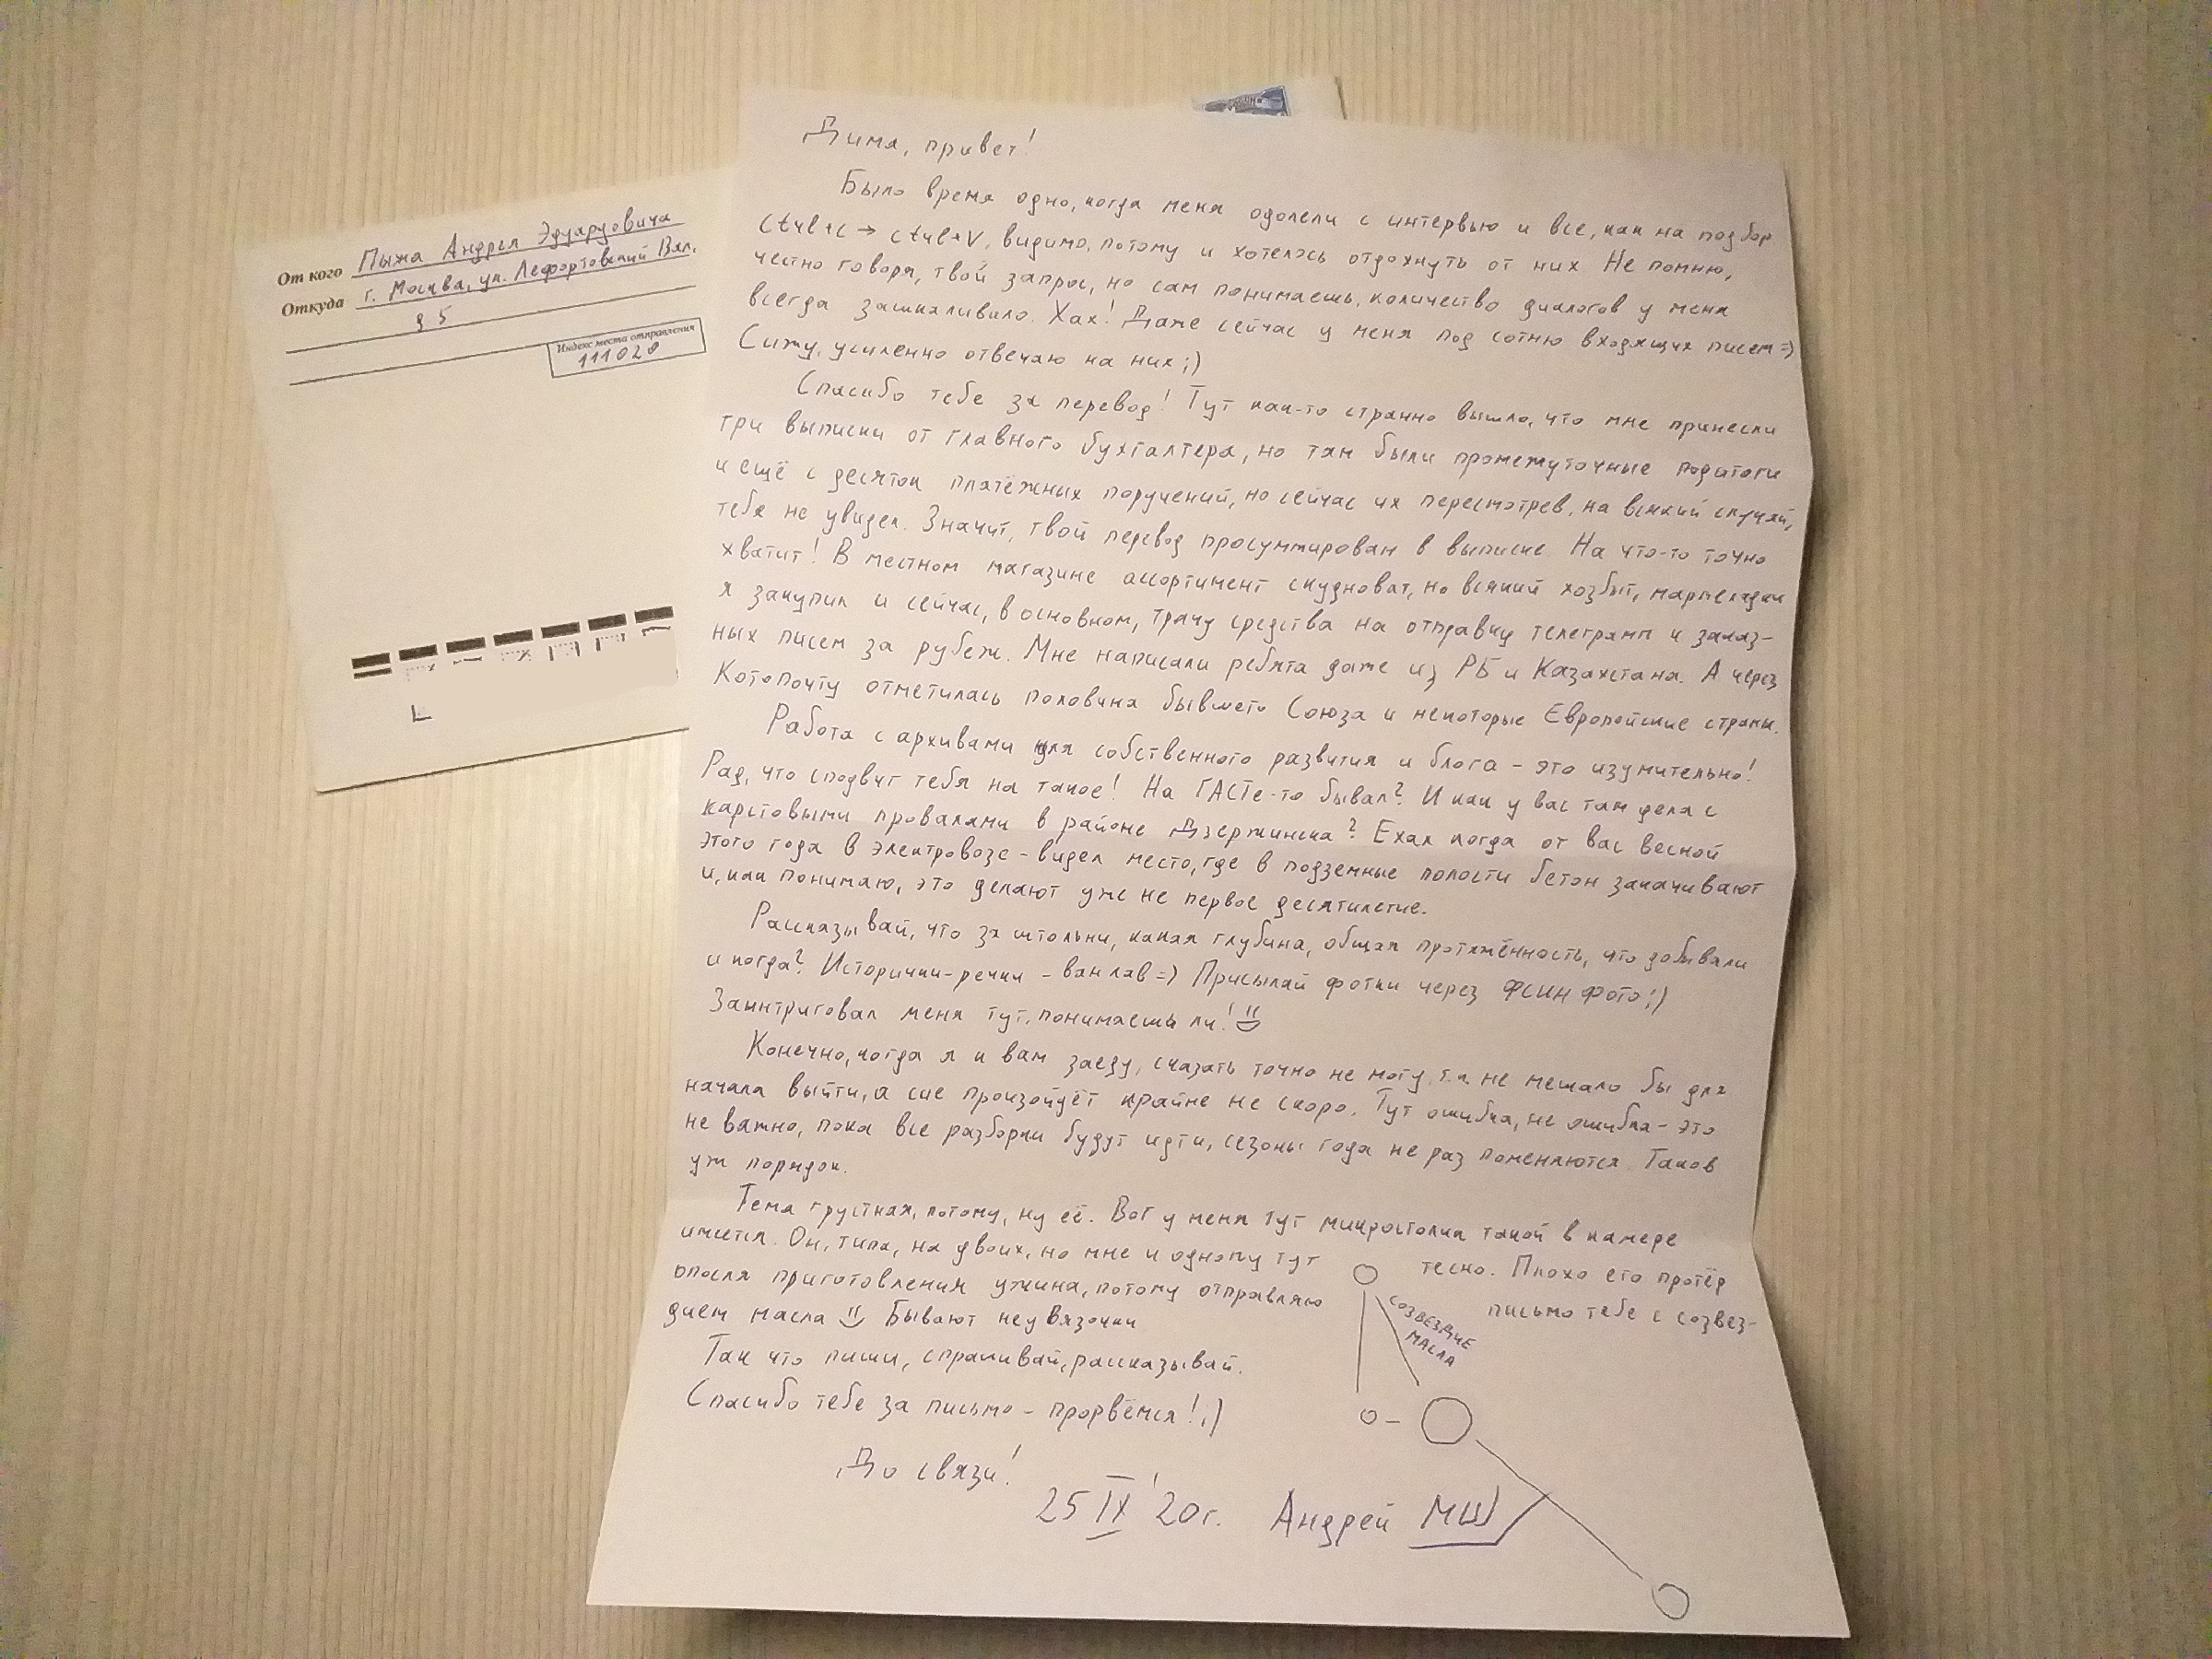 От кого Пыжа Андрея Эдуардовича
Откуда г. Москва, ул. Лефортовский Вал,
д 5
Индекс места отправления
111020
Дима, привет!
Было время одно, когда меня одолели с интервью и все, как на подбор
Ctrl+c → ctrl+V, видимо, потому и хотелось отдохнуть от них. Не помню,
честно говоря, твой запрос, но сам понимаешь, количество диалогов у меня
всегда зашкаливало. Хах! Даже сейчас у меня под сотню входящих писем =)
Сижу, усиленно отвечаю на них ;)
Спасибо тебе за перевод! Тут как-то странно вышло, что мне принесли
три выписки от главного бухгалтера, но там были промежуточные подитоги
и ещё с десяток платёжных поручений, но сейчас их пересмотрев, на всякий случай,
тебя не увидел. Значит, твой перевод просуммирован в выписке. На что-то точно
хватит! В местном магазине ассортимент скудноват, но всякий хозбыт, мармеладки
я закупил и сейчас, в основном, трачу средства на отправку телеграмм и заказ-
ных писем за рубеж. Мне написали ребята даже из РБ и Казахстана. А через
Котопочту отметилась половина бывшего Союза и некоторые Европейские страны.
Работа с архивами для собственного развития и блога - это изумительно!
Рад, что сподвиг тебя на такое! На ГАСТе-то бывал? И как у вас там дела с
карстовыми провалами в районе Дзержинска? Ехал когда от вас весной
этого года в электровозе - видел место, где в подземные полости бетон закачивают
и, как понимаю, это делают уже не первое десятилетие.
Рассказывай, что за штольни, какая глубина, общая протяжённость, что добывали
и когда? Исторички-речки - ван лав =) Присылай фотки через ФСИН фото ;)
Заинтриговал меня тут, понимаешь ли!
Конечно, когда я к вам заеду, сказать точно не могу, т.к. не мешало бы для
начала выйти, а сие произойдёт крайне не скоро. Тут ошибка, не ошибка - это
не важно, пока все разборки будут идти, сезоны года не раз поменяются. Таков
уж порядок.
Тема грустная, потому, ну её. Вот у меня тут микростолик такой в камере
имеется. Он, типа, на двоих, но мне и одному тут тесно. Плохо его протёр
опосля приготовления ужина, потому отправляю письмо тебе с созвез-
дием масла Бывают неувязочки
СОЗВЕЗДИЕ
МАСЛА
Так что пиши, спрашивай, рассказывай.
Спасибо тебе за письмо - прорвёмся! ;)
До связи!
25 IX '20г. Андрей МШ